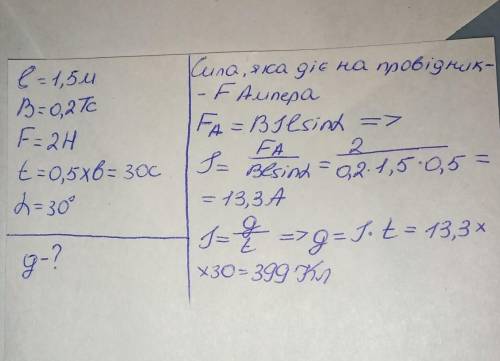 l = 1,5м
B = 0,2Тс
F = 2Н
t = 0,5хв = 30с
α = 30°
q - ?
Сила, яка діє на провідник -
- F Ампера
F_A = BIlsinα =>
I = F_A / Blsinα = 2 / 0,2·1,5·0,5 =
= 13,3А
I = q / t => q = I·t = 13,3 ×
× 30 = 399 Кл